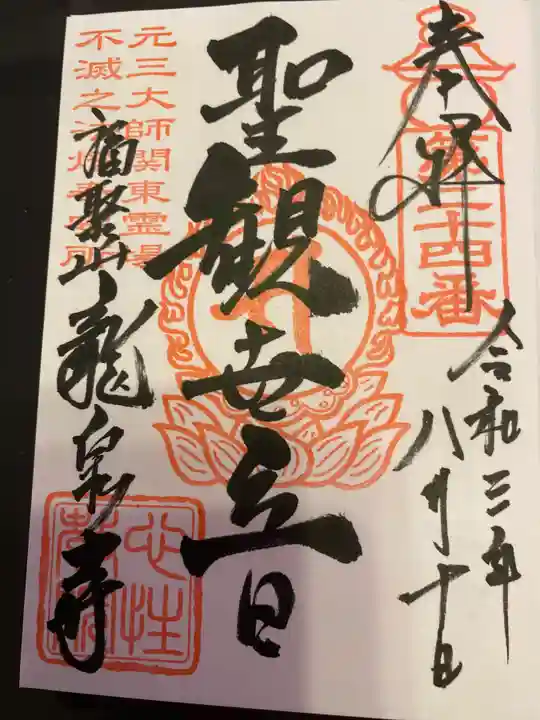 奉拝
第二十四番
令和三年
八月十日
聖観世音
元三大師関東霊場
不滅之法灯
福聚山龍泉寺
心性